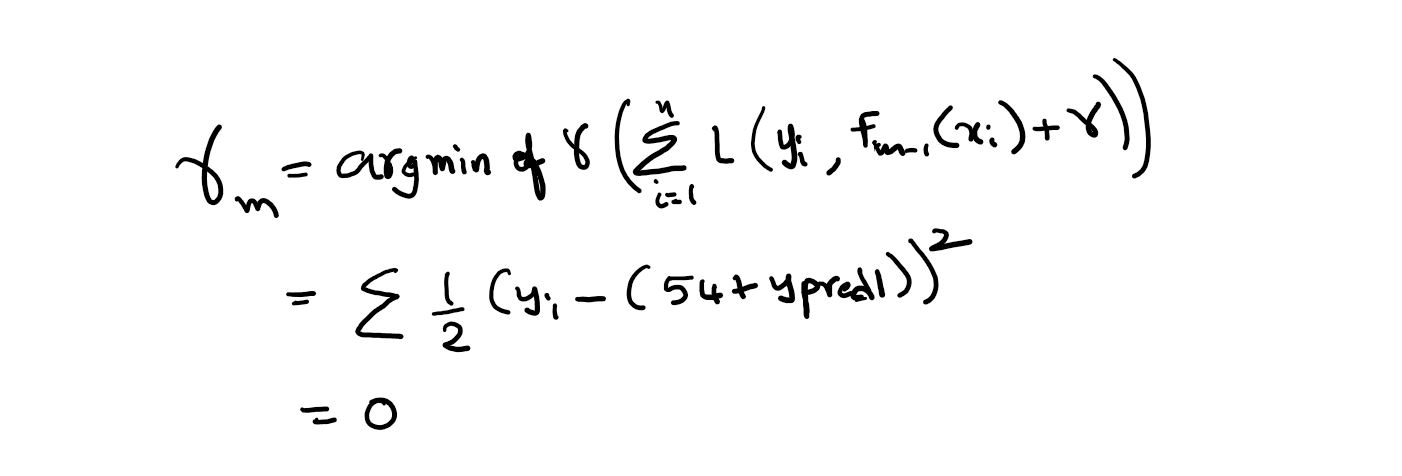 γₘ = argmin of γ (∑ⁿᵢ₌₁ L(yᵢ, fₘ₋₁(xᵢ) + γ))
= ∑ 1/2 (yᵢ − (54 + ypred1))²
= 0